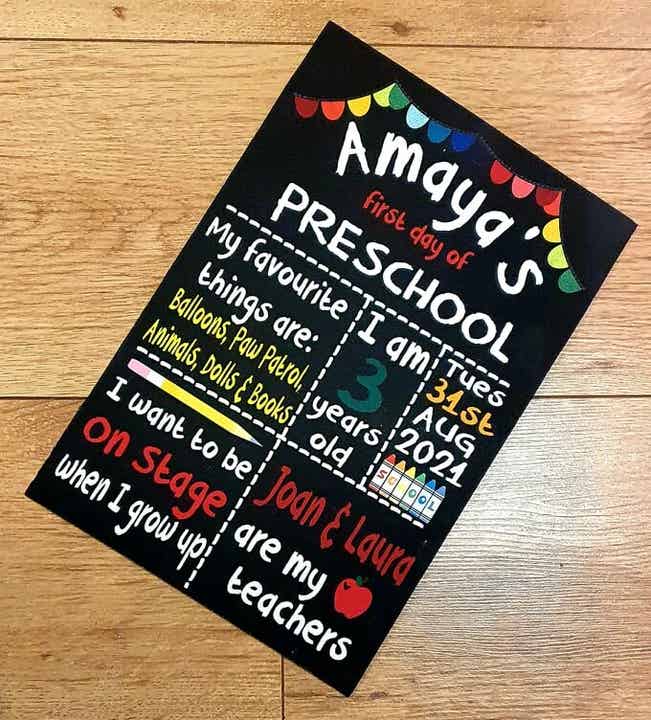 Amaya's
first day of
PRESCHOOL
My favourite
things are:
Balloons, Paw Patrol,
Animals, Dolls & Books
I am
3
years
old
Tues
31st
AUG
2021
SCHOOL
I want to be
on stage
when I grow up!
Joan & Laura
are my
teachers